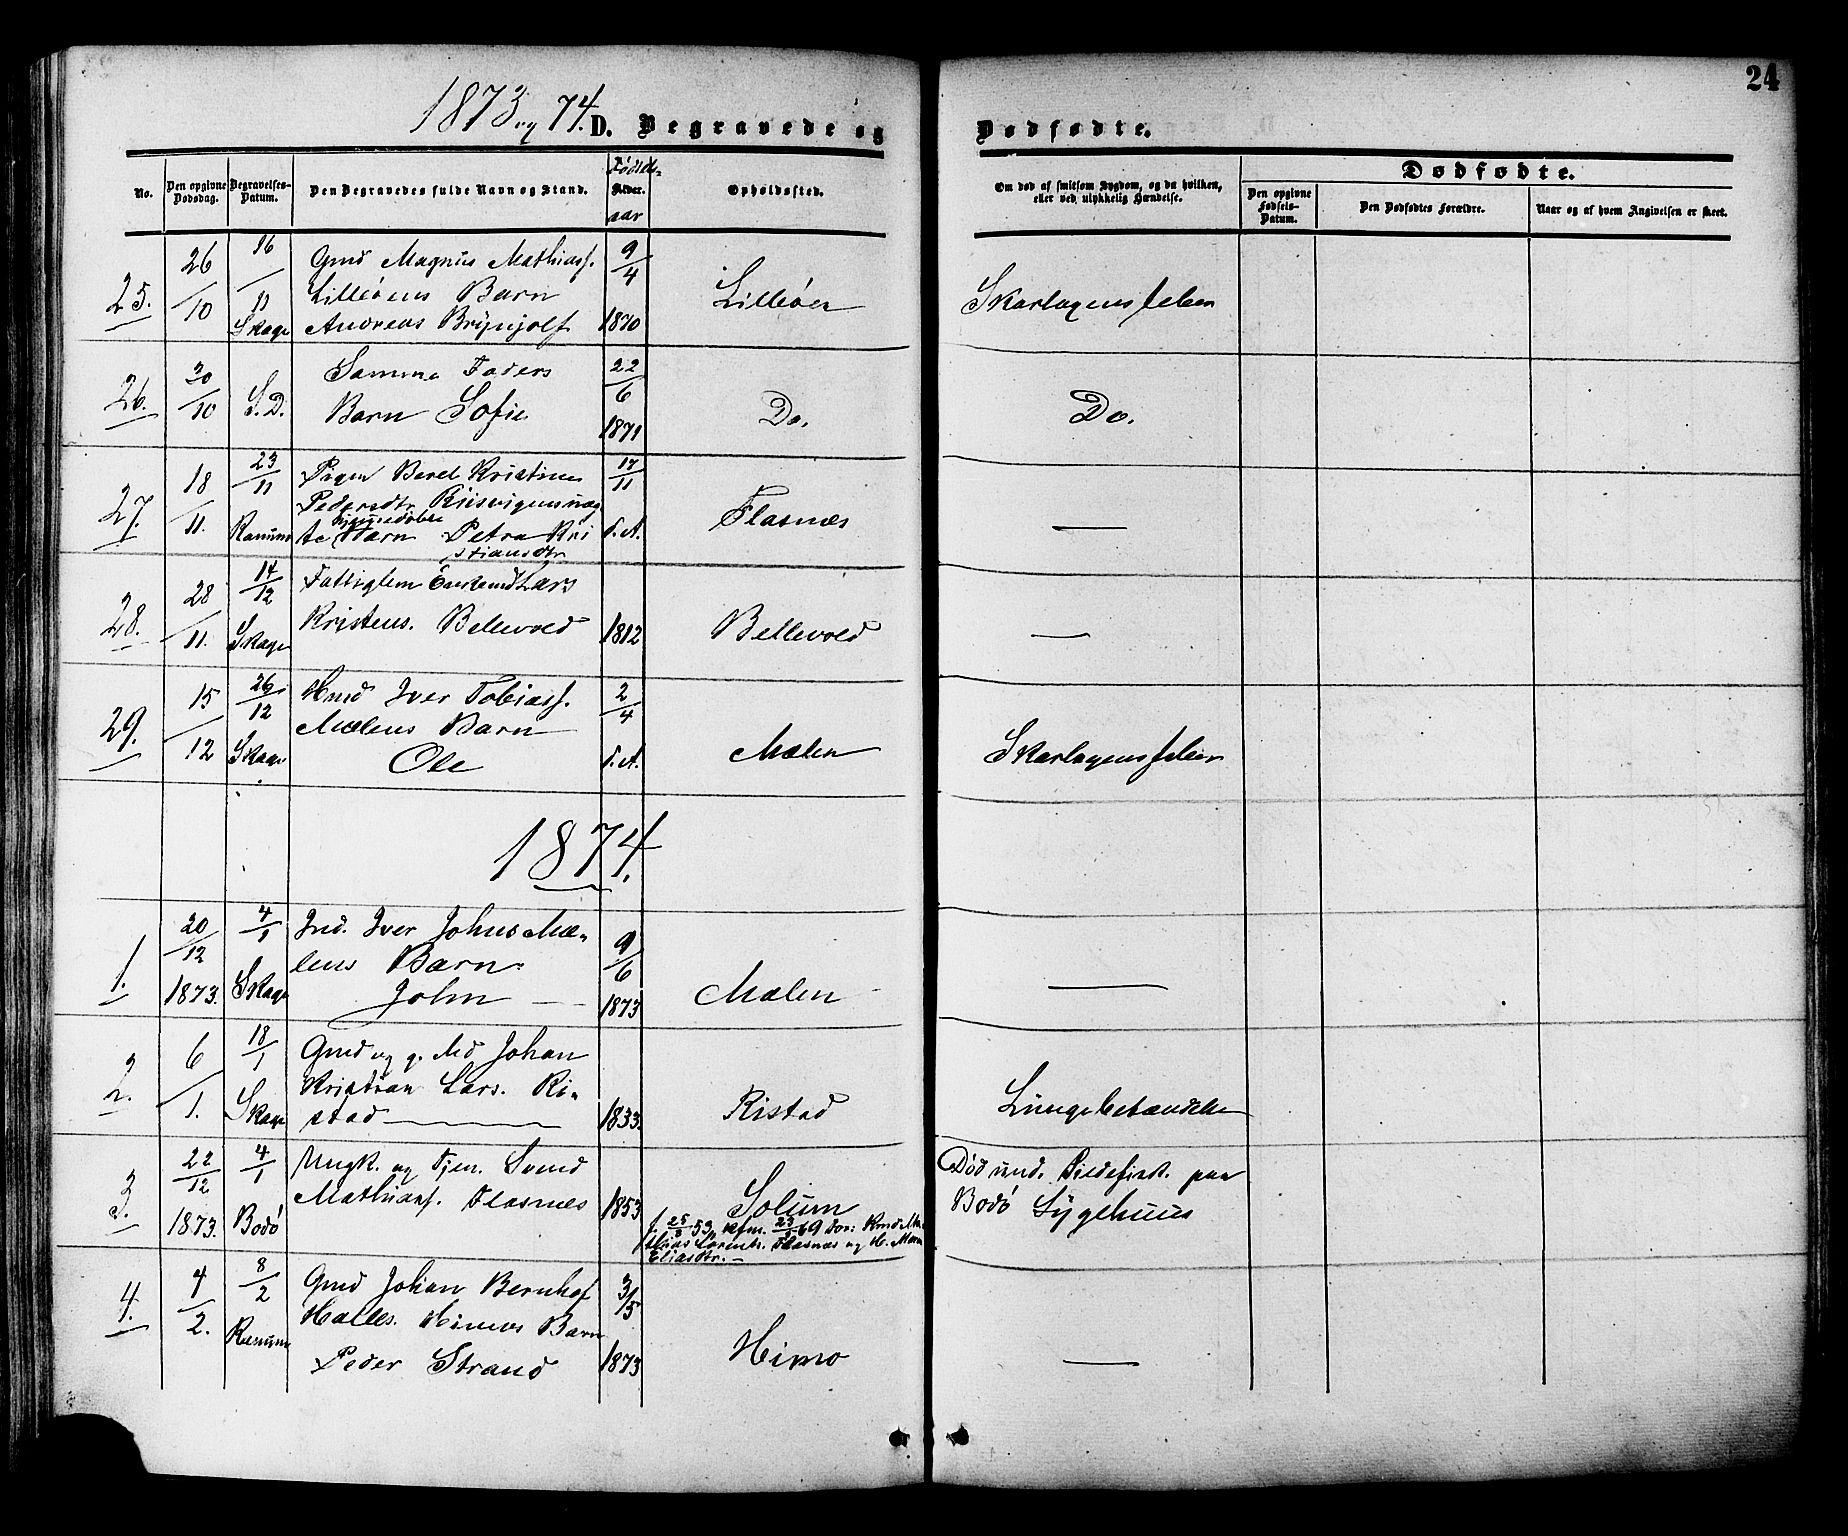 1873 og 74.
D. Begravede og
Dødfødte.
24
No.
Den opgivne Dødsdag.
Begravelses-Datum.
Den Begravedes fulde Navn og Stand.
Fødsels-
Alder.
aar
Opholdssted.
Om død af smitsom Sygdom, og da hvilken,
eller ved ulykkelig Hændelse.
Dødfødte.
Den opgivne Fødsels-Datum.
Den Dødfødtes Forældre.
Naar og af hvem Angivelsen er skeet.
25.
26/10
16/11 Skage
Gmd Magnus Mathiass.
Lilleøens Barn
Andreas Brynjolf
9/4 1870
Lilleøen
Skarlagensfeber
26.
30/10
S.D.
Samme Faders
Barn Sofie
22/6 1871
Do.
Do.
27.
18/11.
23/11 Ranum
Pigen Berel Kristine
Pedersdtr Riisvigens uæg
te Barn Petra Kri
stiansdtr
17/11 s.A.
Flasnæs
—
28.
28/11.
14/12 Skage
Fattiglem Lars
Kristens. Bellevold
1812
Bellevold
—
29.
15/12
26/12 Skage
Hmd Iver Tobiass.
Mælens Barn
Ole
2/4 s.A.
Mælen
Skarlagensfeber
1874.
1.
20/12 1873.
4/1 Skage
Ind. Iver Johns Mæ-
lens Barn
John —
9/6 1873
Mælen
—
2.
6/1.
18/1 Skage
Gmd og g. Md Johan
Kristian Lars. Ri-
stad —
1833.
Ristad
Lungebetændelse
3.
22/12 1873.
4/1 Bodø
Ungk. og Tjen. Svend
Mathiass. Flasnæs
1853
Solum
f. 25/8 53, kfm. 23/5 69 For: Kmd Ma
thias Lorentz. Flasnæs og H. Maren
Eliasdtr. —
Død und. Sildefisk. paa
Bodø Sygehuus
4.
4/2.
8/2 Ranum
Gmd Johan Bernhof
Halles. Himos Barn
Peder Strand
3/5 1873
Himo
—